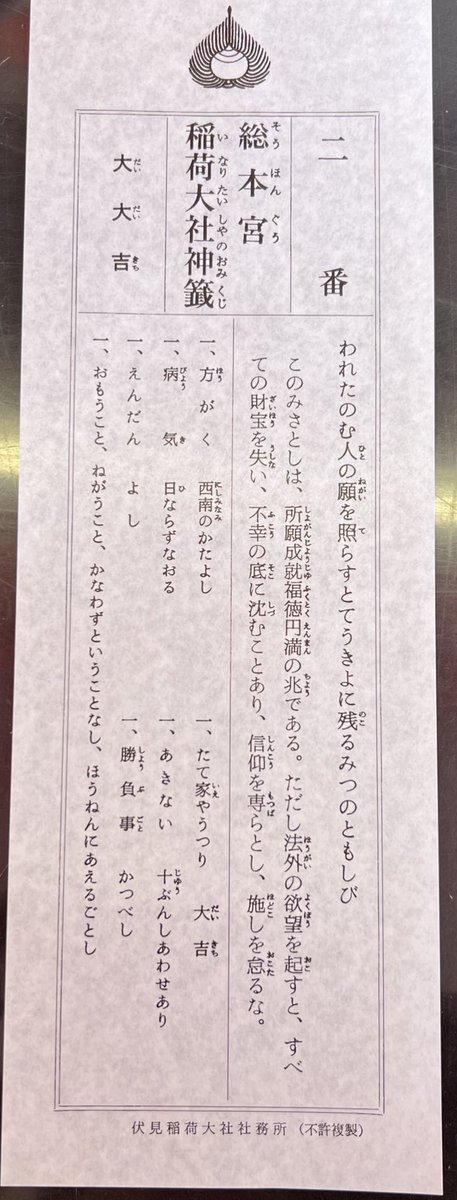 二番
総本宮
稲荷大社神籤
大大吉
われたのむ人の願を照らすとてうきよに残るみつのともしび
このみさとしは、所願成就福徳円満の兆である。ただし法外の欲望を起すと、すべ
ての財宝を失い、不幸の底に沈むことあり、信仰を専らとし、施しを怠るな。
一、方がく 西南のかたよし
一、たて家やうつり 大吉
一、病気 日ならずなおる
一、あきない 十ぶんしあわせあり
一、えんだん よし
一、勝負事 かつべし
一、おもうこと、ねがうこと、かなわずということなし、ほうねんにあえるごとし
伏見稲荷大社社務所 （不許複製）